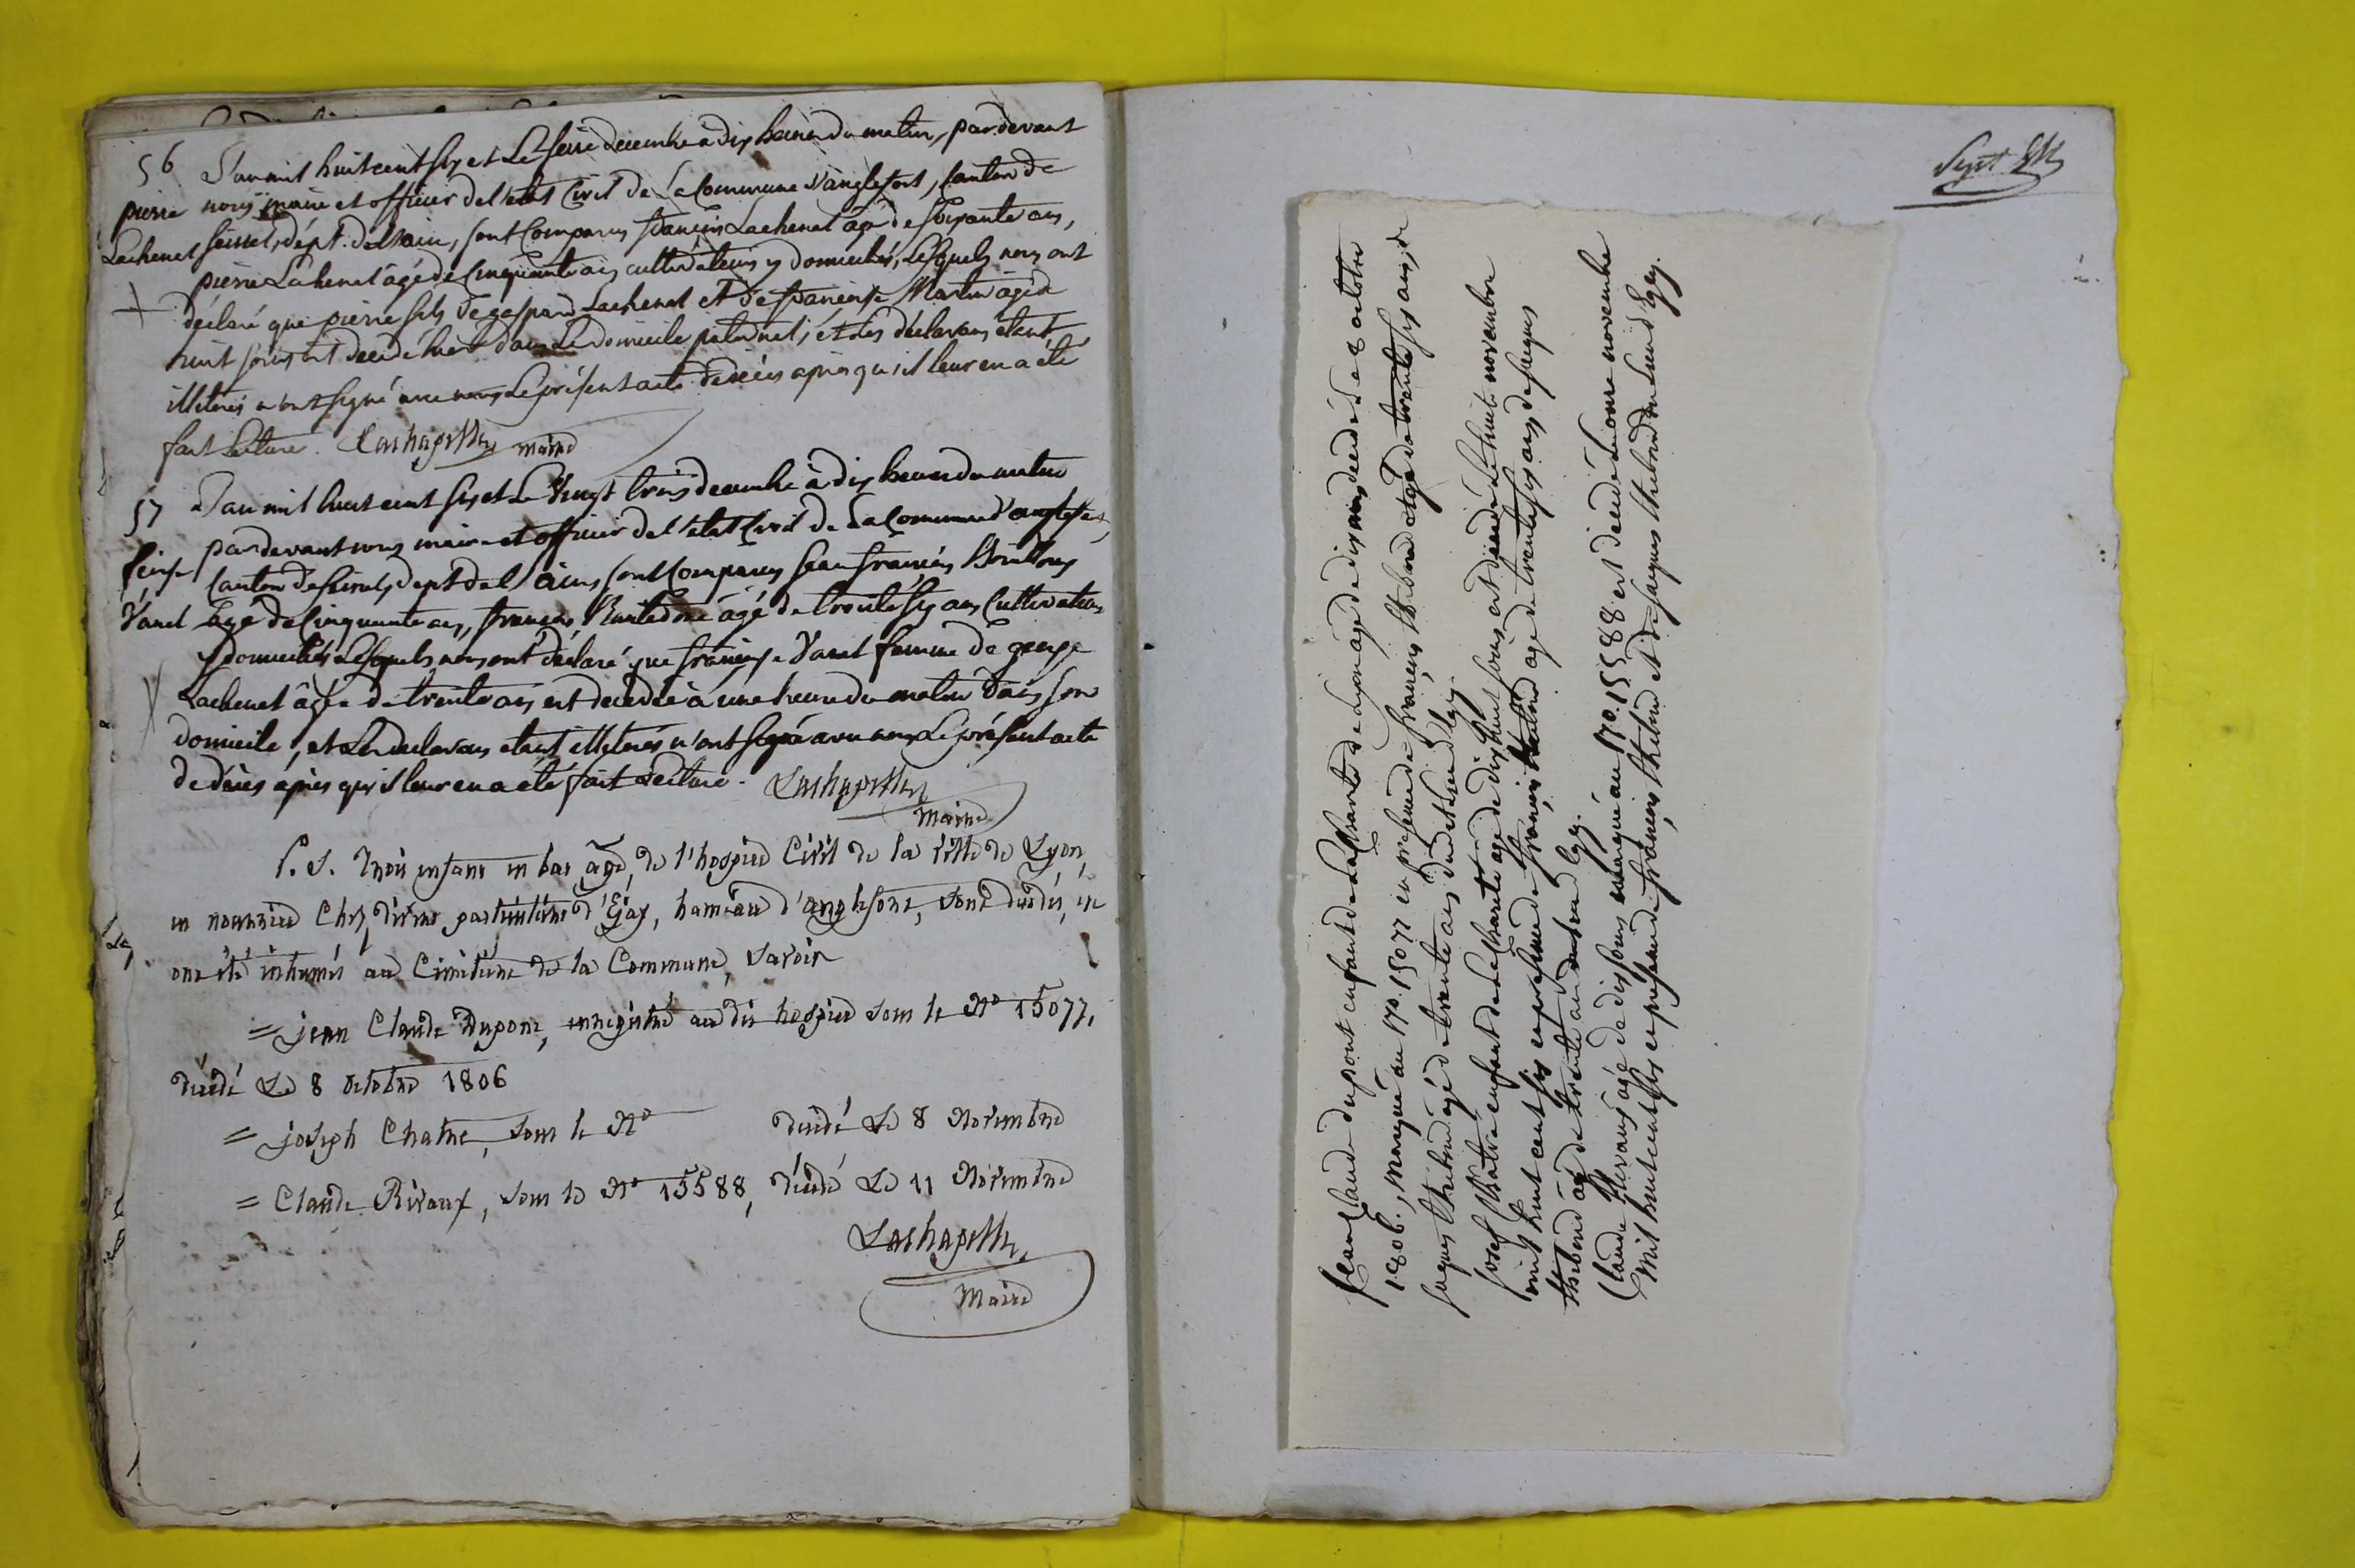 56 L'an mil huit cent six et le seize decembre à dix heures du matin, pardevant
pierre nous maire et officier de l'etat Civil de La Commune d'anglefort, Canton de
Lachenet seissel, dépt. de l'ain, sont Comparus françois Lachenal agé de soixante ans,
pierre Lachenal âgé de Cinquante ans cultivateurs y domiciliés, lesquels nous ont
déclaré que pierre fils de gaspard Lachenal et de françoise Martin agé de
huit jours est decedé hier dans le domicile paternel, et les déclarans étant
illiterés n'ont signé avec nous Le présent acte de décès après qu'il leur en a été
fait Lecture. Lachapelle maire
57 L'an mil huit cent six et le vingt trois decembre à dix heures du matin
pardevant nous maire et officier de l'etat Civil de La Commune d'anglefort,
Canton de seissel, dept. de l'ain, sont Comparus jean françois
Vanel agé de Cinquante ans, françois âgé de trente six ans Cultivateurs
y domiciliés Lesquels nous ont déclaré que françoise Vanel femme de george
Lachenal âgée de trente ans est decedée à une heure du matin dans son
domicile, et les declarans etant illiterés n'ont signé avec nous Le présent acte
de décès après qu'il leur en a eté fait Lecture. Lachapelle
Maire
P. S. Trois enfans en bas âge, de l'hospice Civil de la ville de Lyon,
en nourrice Chez divers particuliers d'Egy, hameau d'anglefort, sont décédés, et
ont été inhumés au Cimitière de la Commune, Savoir
= jean Claude Dupont, enregistré au dit hospice sous le N° 15077,
décédé Le 8 octobre 1806
= joseph Chatre, sous le N° décédé Le 8 Novembre
= Claude Rivaux, sous le N° 15588, décédé Le 11 Novembre
Lachapelle
Maire
Sept
jean Claude dupont enfant de La Charité de Lyon agé de dix mois decedé Le 8 octobre
1806., marqué au N°. 15077 en presence de françois thebond agé de trente six ans, de
jaques thebond agé de trente ans du dit lieu d'Egy.
josef Chatre enfant de La Charité agé de dix huit jours est decedé Le huit novembre
mil huit cent six en presence de françois thebond agé de trente six ans de jaques
thebond agé de trente ans du lieu d'Egy.
Claude Rivaux agé de dix jours marqué au N°. 15588 est decedé Le onze novembre
mil huit cent six en presence de françois thebond et de jaques thebond du Lieu d'Egy.